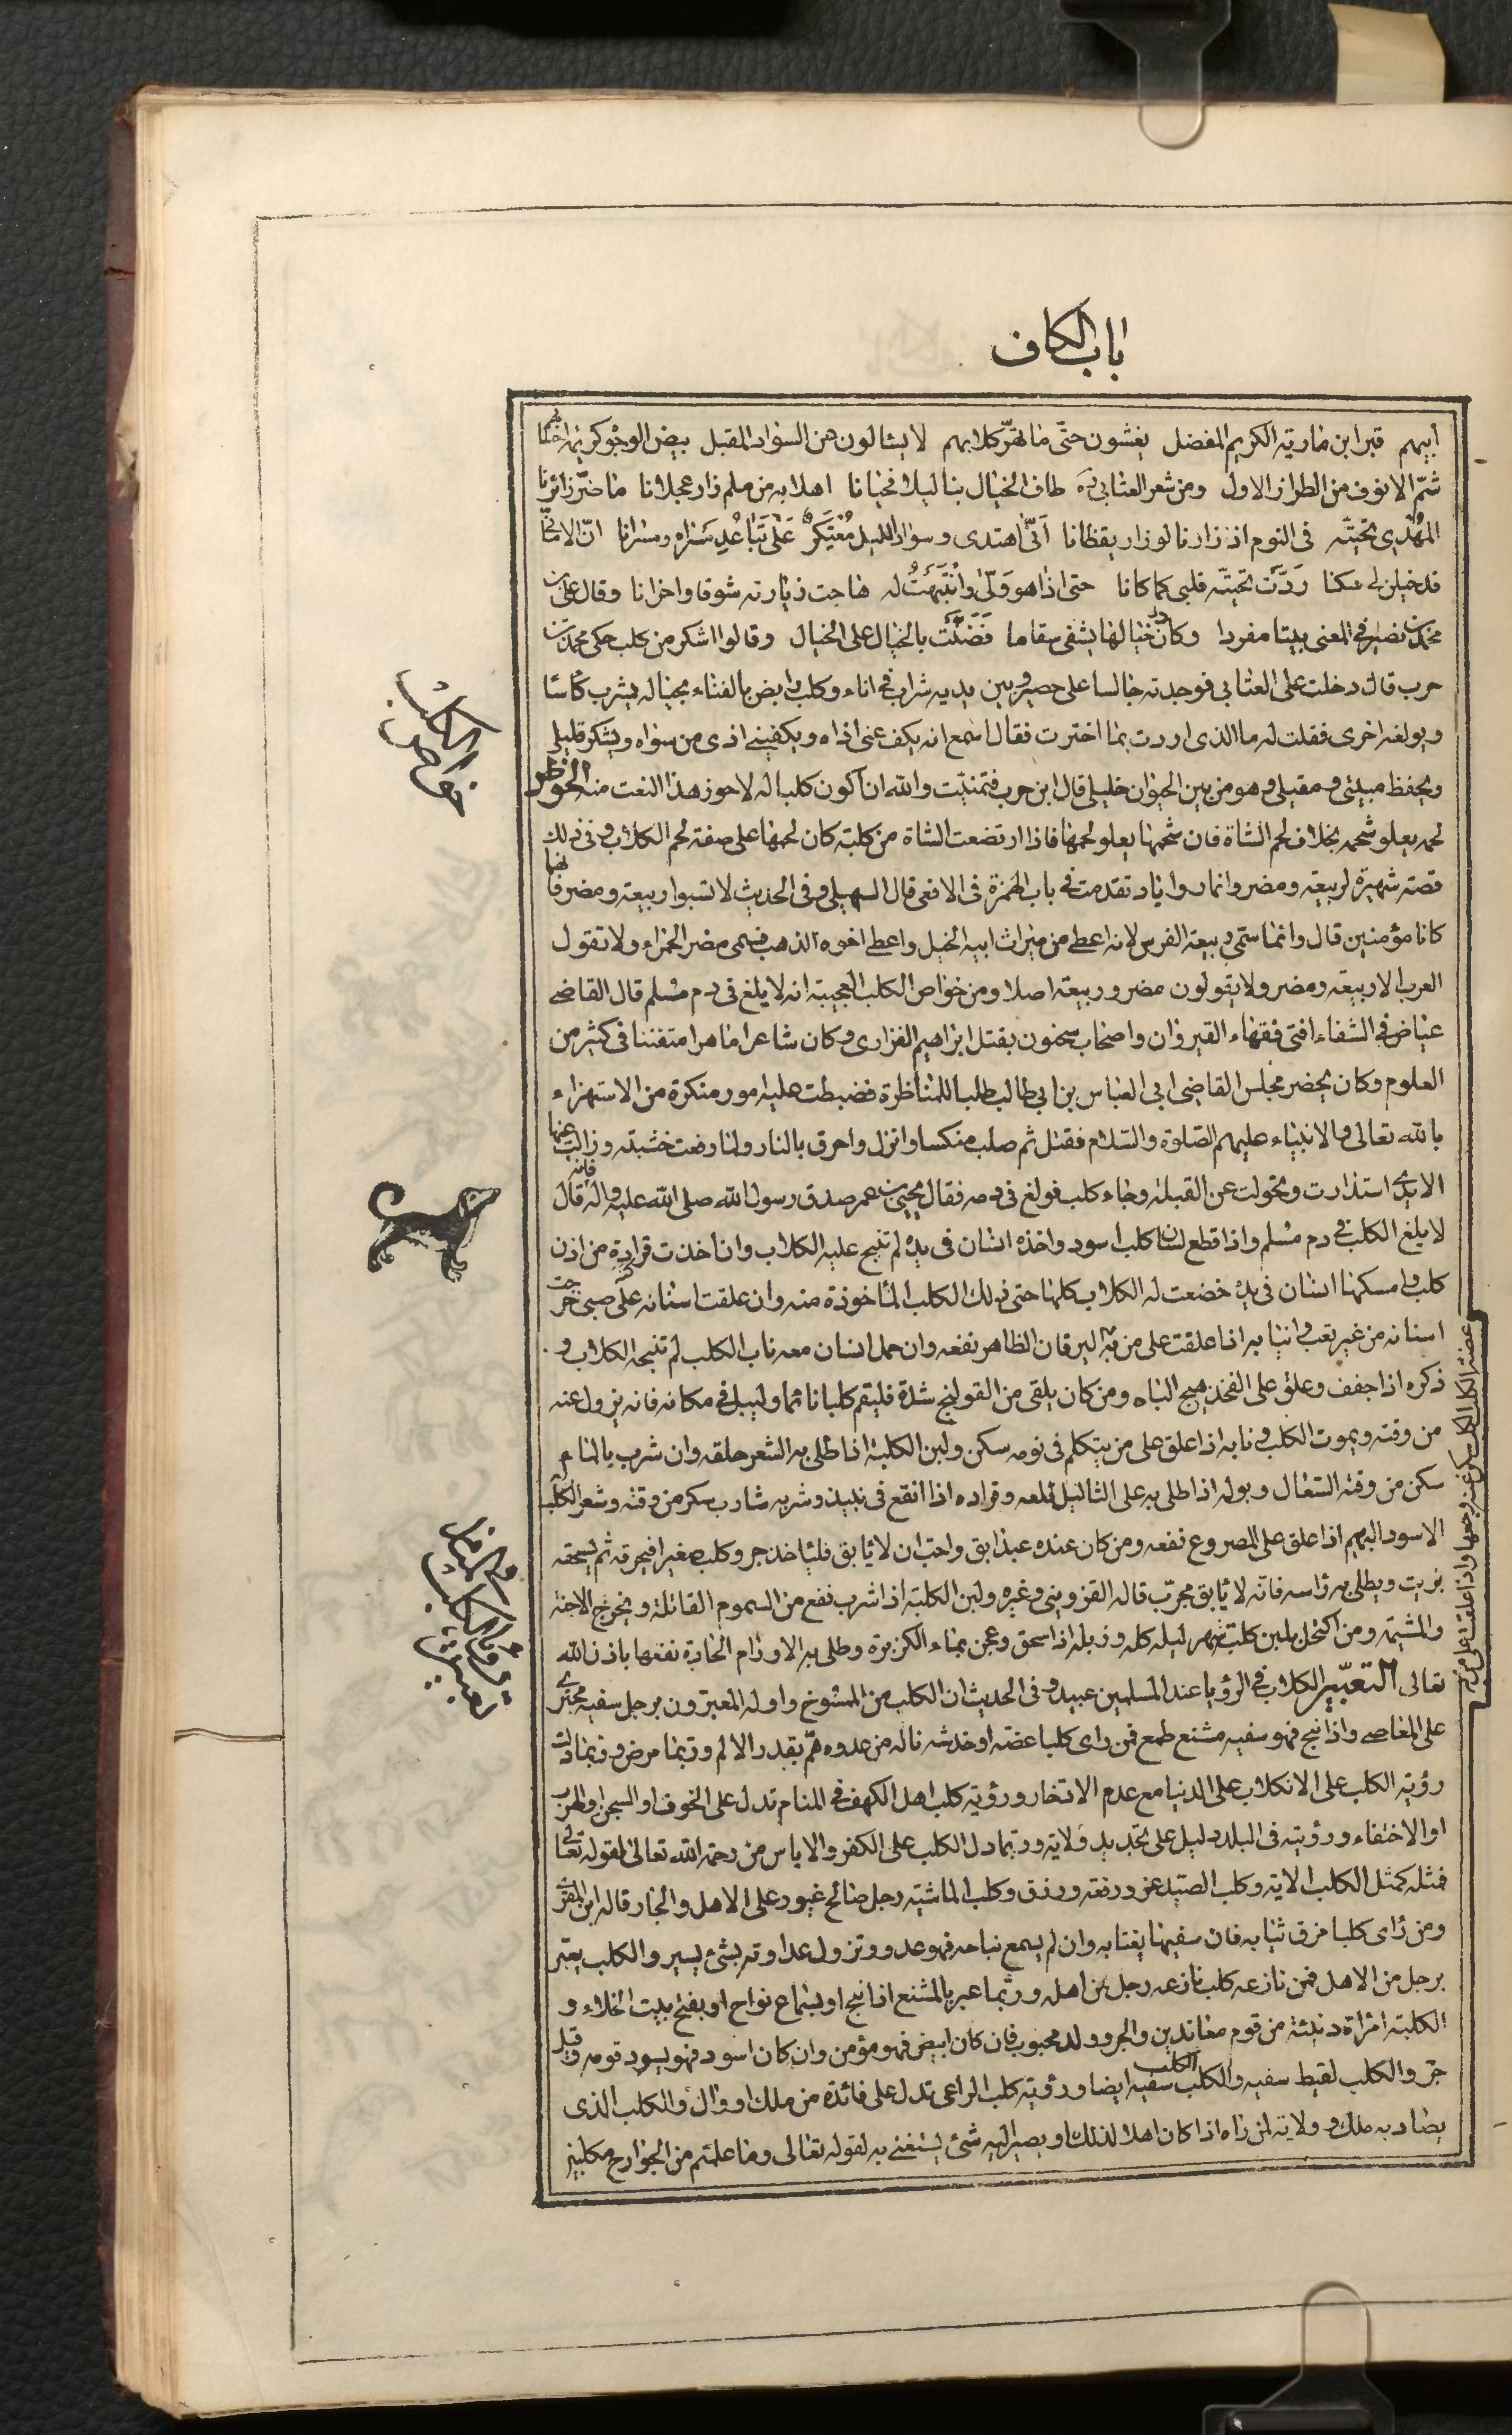 باب الكاف
ابيهم قبر ابن مارية الكريم المفضل يغشون حتّى ما تهرّ كلابهم لا يسئالون عن السواد المقبل بيض الوجوه كريمة احسابهم
شمّ الانوف من الطراز الاول ومن شعر العتابى طاف الخيال بنا ليلا فحيانا اهلا به من ملم زار عجلانا ما ضرّ زائرنا
المهدى تحيتّه فى النوم اذ زارنا لو زار يقظانا اَنّى اهتدى وسواد الليل مُعْتَكِرٌ عَلى تَباعُدِ مَسْراه ومسرانا انّ الامانى
قد خيلن لى سكنا رَدَّت تحيتّه قلبى كما كانا حتى اذا هو وَلّى وانْتَبَهتُ له هاجت زيارته شوقا واحزانا وقال على بن
محمد بن نصير فى المعنى بيتا مفردا وكان خيالها يشفى سقاما فَضَنَّت بالخيال على الخيال وقالوا اشكر من كلب حكى محمد بن
حرب قال دخلت على العتابى فوجدته جالسا على حصير وبين يديه شراب فى اناء وكلب رابض بالفناء بحياله يشرب كاسا
ويولغه اخرى فقلت له ما الذى اردت بما اخترت فقال اسمع انه يكف عنى اذاه ويكفينى اذى من سواه ويشكر قليلى
ويحفظ مبيتى ومقيلى وهو من بين الحيوان خليلى قال ابن حرب فتمنيّت والله ان اكون كلبا له لاحوز هذا النعت منه الخواص
لحمه يعلو شحمه بخلاف لحم الشاة فان شحمها يعلو لحمها فاذا ارتضعت الشاة من كلبة كان لحمها على صفة لحم الكلاب وفى ذلك
قصة شهيرة لربيعة ومضر وانمار واياد تقدمت فى باب الهمزة فى الافعى قال السهيلى وفى الحديث لا تسبوا ربيعة ومضر فانهما
كانا مؤمنين قال وانما سمّى ربيعة الفرس لانه اعطى من ميراث ابيه الخيل واعطى اخوه الذهب فسمى مضر الحمراء ولا تقول
العرب الا ربيعة ومضر ولا يقولون مضر وربيعة اصلا ومن خواص الكلب العجيبة انه لا يلغ فى دم مسلم قال القاضى
عياض فى الشفاء افتى فقهاء القيروان واصحاب سحنون بقتل ابراهيم الفزارى وكان شاعرا ماهرا متفننا فى كثير من
العلوم وكان يحضر مجلس القاضى ابى العباس بن ابى طالب للمناظرة فضبطت عليه امور منكرة من الاستهزاء
بالله تعالى والانبياء عليهم الصّلوة والسّلام فقتل ثم صلب منكسا وانزل واحرق بالنار ولما رفعت خشبته وزالت عنها
الايدى استدارت وتحولت عن القبلة وجاء كلب فولغ فى دمه فقال يحيى بن عمر صدق رسول الله صلى الله عليه واله فانه قال
لا يلغ الكلب فى دم مسلم واذا قطع لسان كلب اسود واخذه انسان فى يده لم تنبح عليه الكلاب وان اخذت قرادة من اذن
كلب وامسكها انسان فى يده خضعت له الكلاب كلها حتى ذلك الكلب المأخوذة منه وان علقت اسنانه على صبى خرجت
اسنانه من غير تعب وانيابه اذا علقت على من به اليرقان الظاهر نفعه وان حمل انسان معه ناب الكلب لم تنبحه الكلاب و
ذكره اذا جفف وعلق على الفخذ هيج الباه ومن كان يلقى من القولنج شدة فليقم كلبا نائما وليبل فى مكانه فانه يزول عنه
من وقته ويموت الكلب ونابه اذا علق على من يتكلم فى نومه سكن ولبن الكلبة اذا طلى به الشعر حلقه وان شرب بالماء
سكن من وقته السّعال وبوله اذا طلى به على الثاليل قلعه وقراده اذا انقع فى نبيذ وشربه شارب سكر من وقته وشعر الكلب
الاسود البهيم اذا علق على المصروع نفعه ومن كان عنده عبد ابق واحبّ ان لا يابق فليأخذ جرو كلب صغير فيحرقه ثم يسحقه
بزيت ويطلى به راسه فانّه لا يابق مجرّب قاله القزوينى وغيره ولبن الكلبة اذا شرب نفع من السموم القاتلة ويخرج الاجنة
والمشيمة ومن اكتحل بلبن كلبة سهر ليله كله وزبله اذا سحق وعجن بماء الكزبرة وطلى به الاورام الحارة نفعها باذن الله
تعالى التعبير الكلاب فى الرؤيا عند المسلمين عبيد وفى الحديث ان الكلب من المسوخ واوله المعبرون برجل سفيه مجترى
على المعاصى واذا نبح فهو سفيه مشنع طمع فمن راى كلبا عضّه او خدشه ناله من عدوه همّ بقدر الالم وربما مرض وربما دلت
رؤية الكلب على الانكلاب على الدنيا مع عدم الادّخار ورؤية كلب اهل الكهف فى المنام تدل على الخوف او السجن او الهرب
او الاختفاء ورؤيته فى البلد دليل على تجديد ولاية وربما دل الكلب على الكفر والاياس من رحمة الله تعالى لقوله تعالى
فمثله كمثل الكلب الاية وكلب الصّيد عز ورفعة ورزق وكلب الماشية رجل صالح غيور على الاهل والجار قاله ابن المقرى
ومن راى كلبا مزق ثيابه فان سفيها يغتابه وان لم يسمع نباحه فهو عدو وتزول عداوته بشئ يسير والكلب يعبّر
برجل من الاهل فمن نازعه كلب نازعه رجل من اهله وربّما عبر بالمشنع اذا نبح او بسماع نواح او بفتح بيت الخلاء و
الكلبة امراة دنيئة من قوم معاندين والجرو ولد محبوب فان كان ابيض فهو مؤمن وان كان اسود فهو يسود قومه وقيل
جرو الكلب لقيط سفيه والكلب الكلب سفيه ايضا ورؤية كلب الراعى تدل على فائدة من ملك او وال والكلب الذى
يصاد به ملك وولاية لمن راه اذا كان اهلا لذلك او يصير اليه شئ يستغنى به لقوله تعالى وما علمتم من الجوارح مكلبين
خواص الكلب
عضة الكلب الكلب سكن عنه وجعها واذا علقت على من